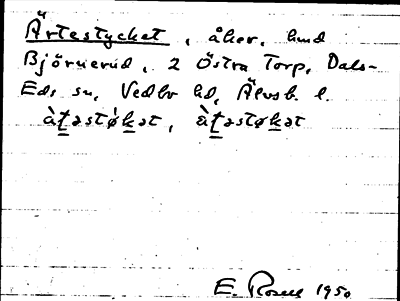 Ärtestycket, åker, und
Björnerud, 2 Östra Torp, Dals-
Eds sn, Vedbo hd, Älvsb. l.
à̀t̲əstø̀k̲ət, àt̲əstøk̲ət
E. Rosell 1950